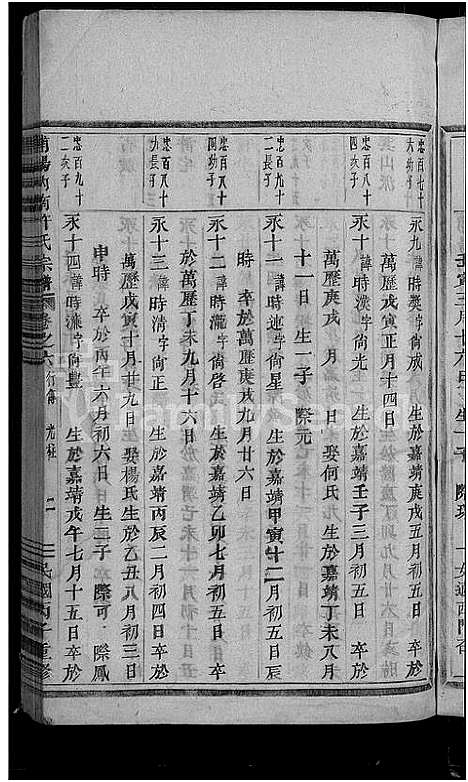 忠百七十
六幼子
永九 諱時獎字尙成 生於嘉靖庚戌五月初五日 卒於
萬歷戊寅正月十四日
忠百八十
四次子
永十 諱時 字尙光 生於嘉靖壬子三月初五日 卒於
萬歷庚戌 月 日 娶何氏 生於嘉靖丁未八月
十一日 生一子 際元
忠百八十
二長子
永十一 諱時連字尙星 生於嘉靖甲寅十二月初五日辰
時 卒於萬歷庚戌九月廿六日
忠百八十
四幼子
永十二 諱時瀧字尙啓 生於嘉靖乙卯七月初五日 卒
於萬歷丁未九月十六日
忠百八十
六長子
永十三 諱時淸字尙正 生於嘉靖丙辰二月初四日 卒於
萬歷戊寅十月廿九日 娶楊氏 生於乙丑八月初三日
申時 卒於丙午六月初六日 生二子 際可 際鳳
忠百九十
二次子
永十四 諱時 字尙豐 生於嘉靖戊午七月十五日 卒於
南陽 南許氏宗譜 卷之六 行傳 光裕 二 民國丙子重修
FamilySearch